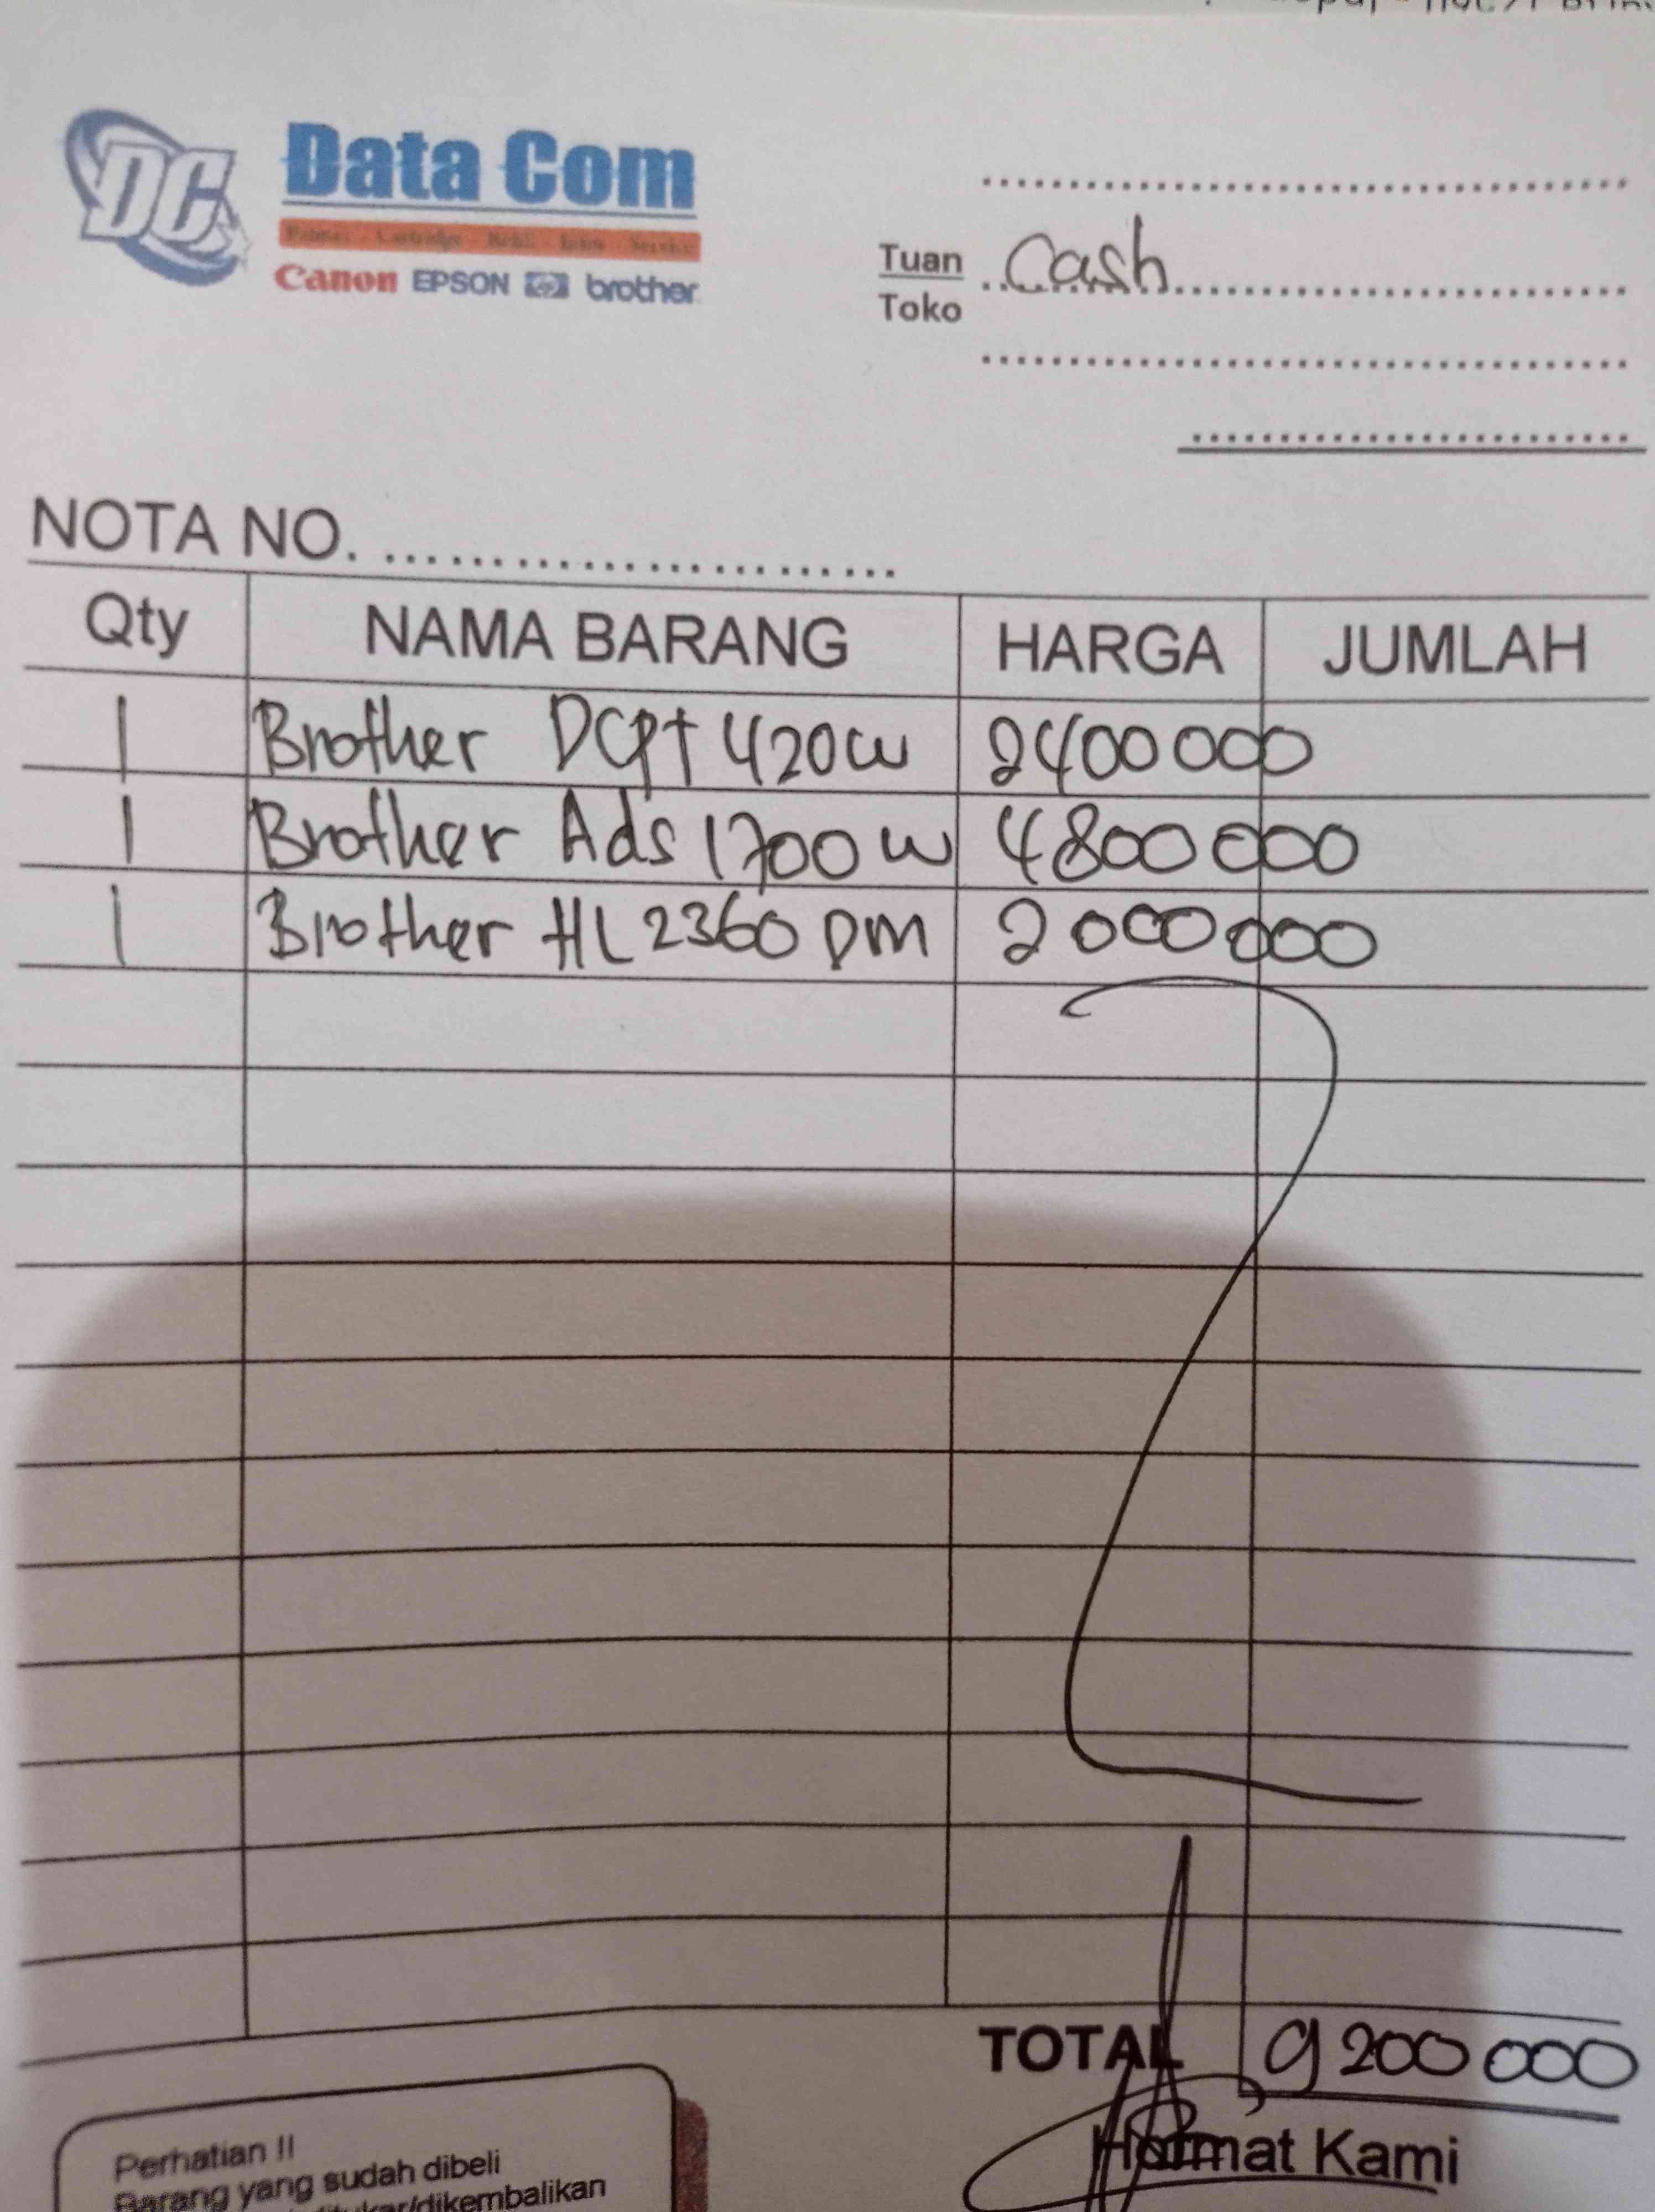 DC
Data Com
Printer - Cartridge - Refill - Infus - Service
Canon EPSON hp brother
Tuan Cash
Toko
NOTA NO.
Qty NAMA BARANG HARGA JUMLAH
1 Brother DCPT 420W 2400 000
1 Brother Ads 1700 W 4800 000
1 Brother HL 2360 DM 2 000 000
TOTAL 9 200 000
Hormat Kami
Perhatian !!
Barang yang sudah dibeli
ditukar/dikembalikan